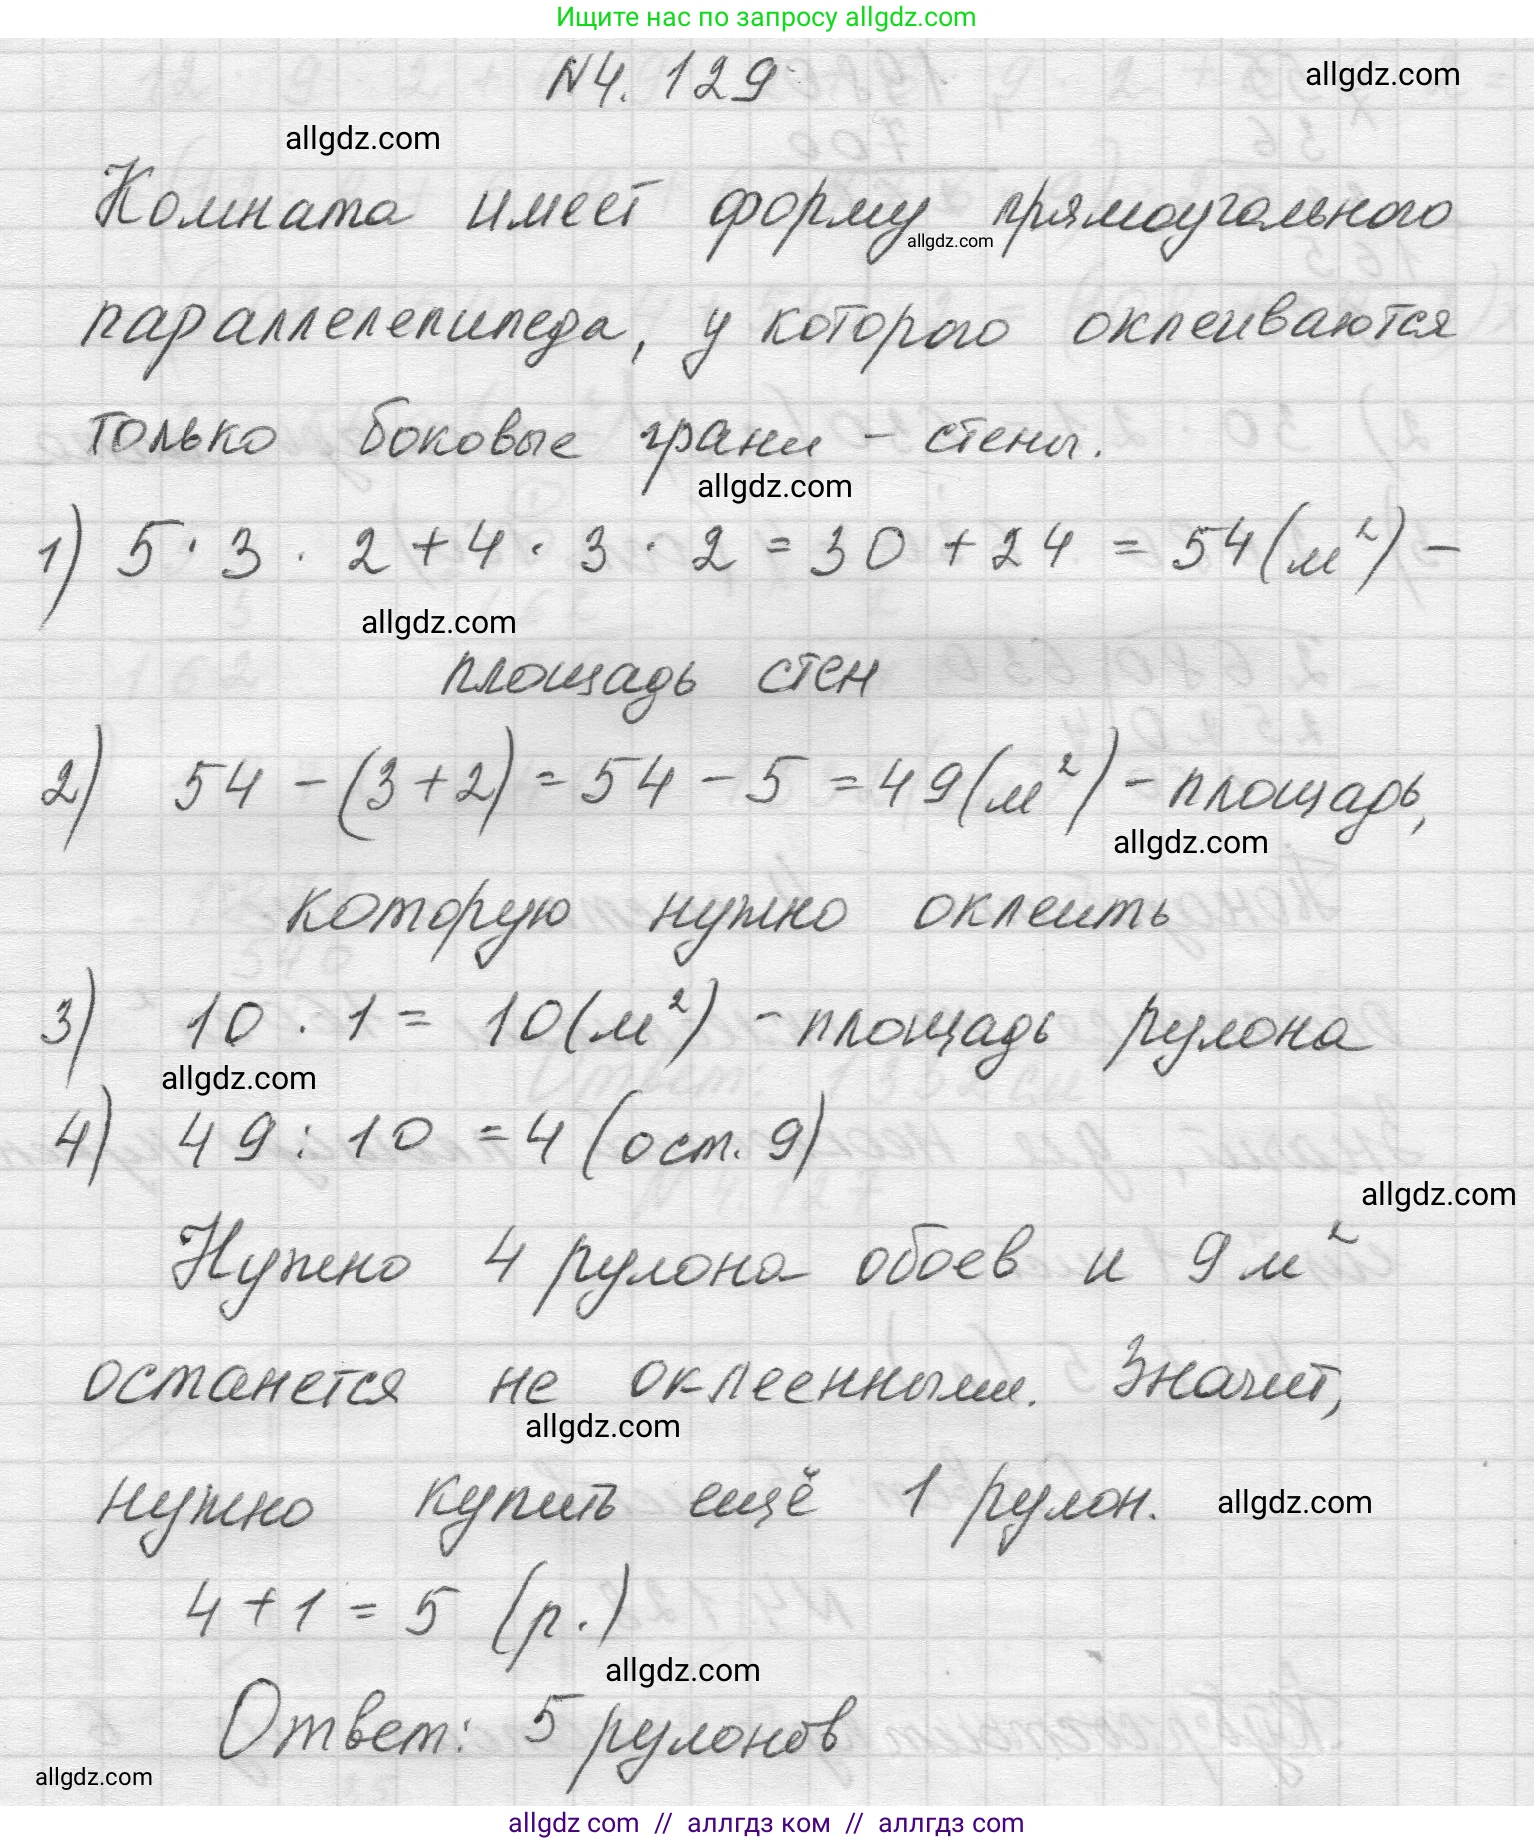 Ищите нас по запросу allgdz.com
N4.129
allgdz.com
allgdz.com
Комната имеет форму прямоугольного
allgdz.com
параллелепипеда, у которого оклеиваются
только боковые грани – стены.
allgdz.com
1) 5·3·2+4·3·2=30+24=54(м²) –
allgdz.com
площадь стен
2) 54-(3+2)=54-5=49(м²) – площадь,
allgdz.com
которую нужно оклеить
3) 10·1=10(м²) – площадь рулона
allgdz.com
4) 49:10=4(ост. 9)
allgdz.com
Нужно 4 рулона обоев и 9м²
останется не оклеенными. Значит,
allgdz.com
нужно купить ещё 1 рулон.
allgdz.com
4+1=5 (р.)
allgdz.com
Ответ: 5 рулонов
allgdz.com
allgdz.com // аллгдз ком // аллгдз.com